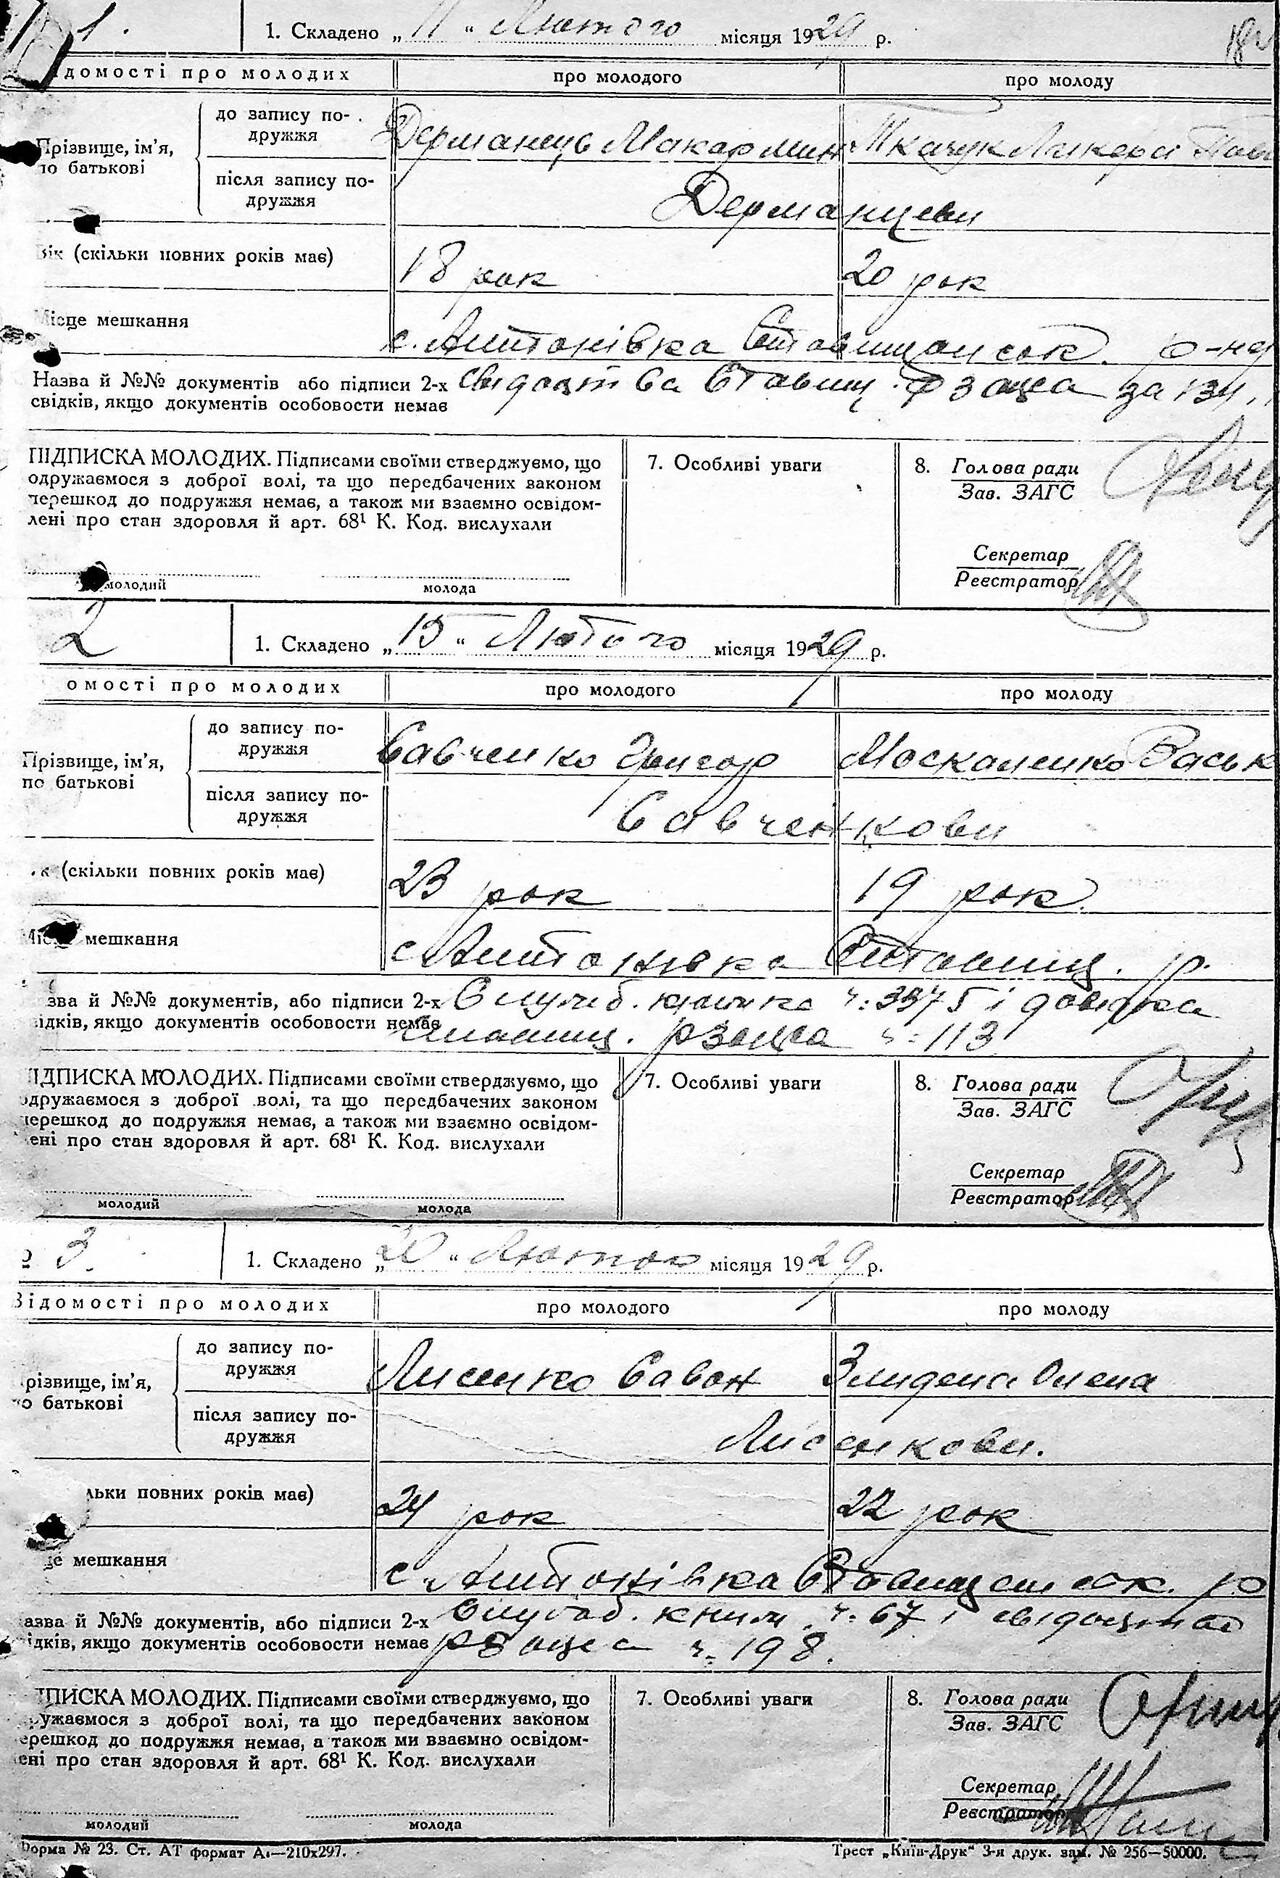 1. 1. Складено „ 11 “ Лютого місяця 1929 р.
ідомості про молодих про молодого про молоду
Прізвище, ім'я, по батькові до запису подружжя Дерманець Макар Ткачук Ликера
після запису подружжя Дерманцеви
Вік (скільки повних років має) 18 рок 20 рок
Місце мешкання с. Антонівка Ставищанськ. р-на
Назва й №№ документів або підписи 2-х Свідоцтва Ставищ. за 134
свідків, якщо документів особовости немає
ПІДПИСКА МОЛОДИХ. Підписами своїми стверджуємо, що
одружаємося з доброї волі, та що передбачених законом
перешкод до подружжя немає, а також ми взаємно освідом-
лені про стан здоров'я й арт. 68¹ К. Код. вислухали
7. Особливі уваги
8. Голова ради
Зав. ЗАГС
Секретар
Реєстратор
молодий молода
2 1. Складено „ 15 “ Лютого місяця 1929 р.
омості про молодих про молодого про молоду
Прізвище, ім'я, по батькові до запису подружжя Савченко Григор Москаленко Васьк
після запису подружжя Савченкови
(скільки повних років має) 23 рок 19 рок
Місце мешкання с Антонівка Ставищ. р.
зва й №№ документів, або підписи 2-х Служб. книжка ч: 3375 і довідка
ідків, якщо документів особовости немає ч: 113
ІДПИСКА МОЛОДИХ. Підписами своїми стверджуємо, що
одружаємося з доброї волі, та що передбачених законом
перешкод до подружжя немає, а також ми взаємно освідом-
ені про стан здоров'я й арт. 68¹ К. Код. вислухали
7. Особливі уваги
8. Голова ради
Зав. ЗАГС
Секретар
Реєстратор
молодий молода
3. 1. Складено „ 20 “ Лютого місяця 1929 р.
Відомості про молодих про молодого про молоду
різвище, ім'я, по батькові до запису подружжя Лисенко Савон Злидена Олена
після запису подружжя Лисенкови.
льки повних років має) 24 рок 22 рок
це мешкання с. Антонівка Ставищанськ. р
азва й №№ документів, або підписи 2-х Служб. книж. ч: 67 і свідоцтво
ідків, якщо документів особовости немає ч: 198.
ПИСКА МОЛОДИХ. Підписами своїми стверджуємо, що
ружаємося з доброї волі, та що передбачених законом
ерешкод до подружжя немає, а також ми взаємно освідом-
ені про стан здоров'я й арт. 68¹ К. Код. вислухали
7. Особливі уваги
8. Голова ради
Зав. ЗАГС
Секретар
Реєстратор
молодий молода
Форма № 23. Ст. АТ формат А₄—210х297. Трест „Київ-Друк“ 3-я друк. зам. № 256—50000.